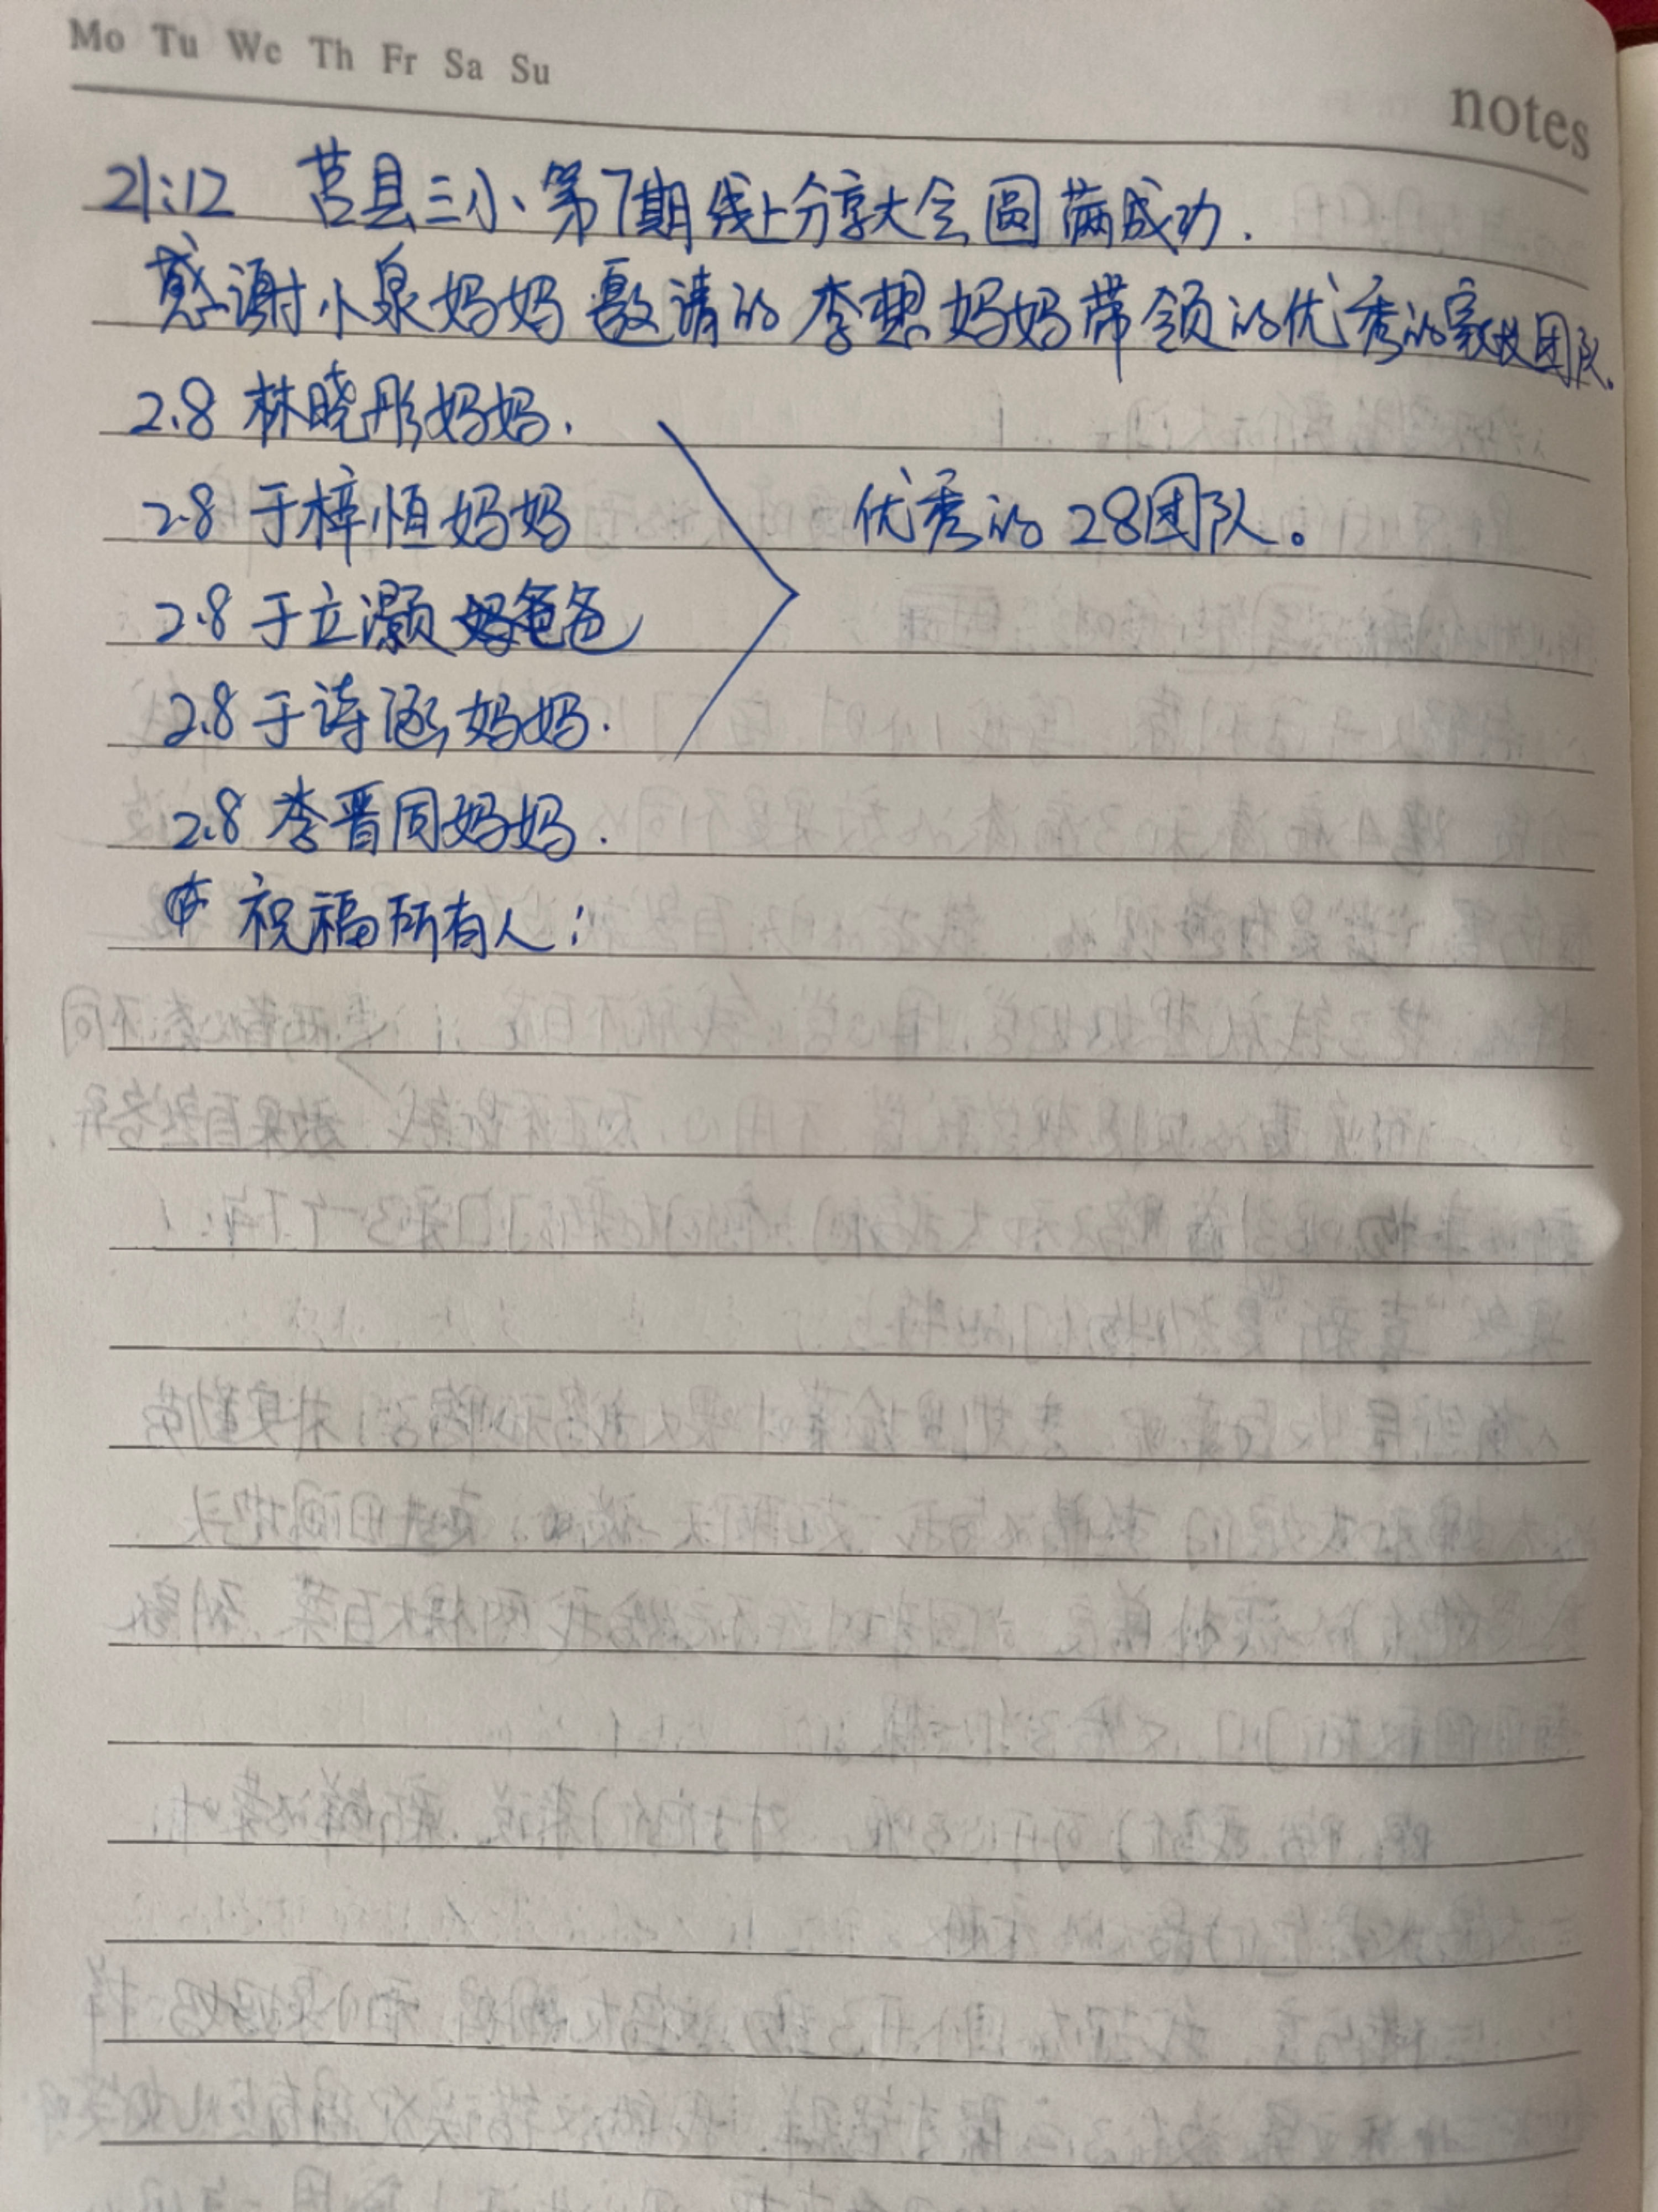 Mo Tu We Th Fr Sa Su
notes
21:12 莒县三小第7期线上分享大会圆满成功.
感谢小泉妈妈邀请的李想妈妈带领的优秀的家校团队.
2.8 林晓彤妈妈.
2.8 于梓恒妈妈
优秀的28团队。
2.8 于立灏爸爸
2.8 于诗涵妈妈.
2.8 李晋同妈妈.
祝福所有人;